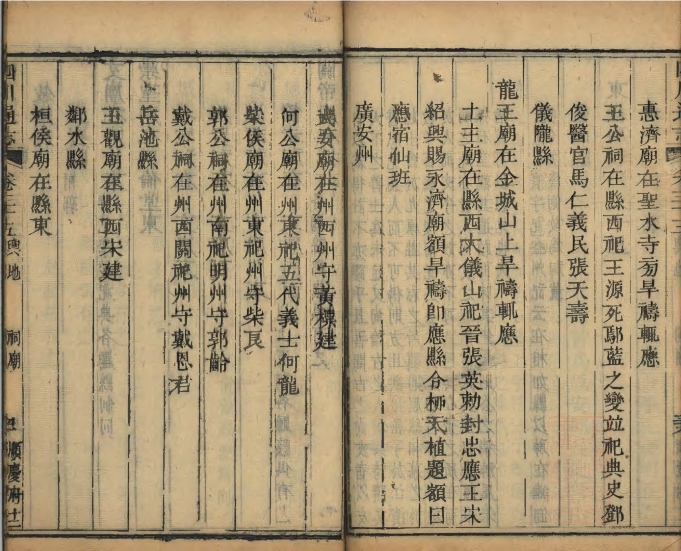 惠濟廟在聖水寺旁旱禱輒應
王公祠在縣西祀王源死鄢藍之變並祀典史鄧
俊醫官馬仁義民張天壽
儀隴縣
龍王廟在金城山上旱禱輒應
土主廟在縣西大儀山祀晉張英勅封忠應王宋
紹興賜永濟廟額旱禱即應縣令柳天植題額曰
應宿仙班
廣安州
在州西州守黃標建
何公廟在州東祀五代義士何龍
柴侯廟在州東祀州守柴良
郭公祠在州南祀明州守郭齡
戴公祠在州西關祀州守戴恩君
岳池縣
王觀廟在縣西宋建
鄰水縣
桓侯廟在縣東
四川通志 卷二十五 輿地 祠廟 順慶府 十二